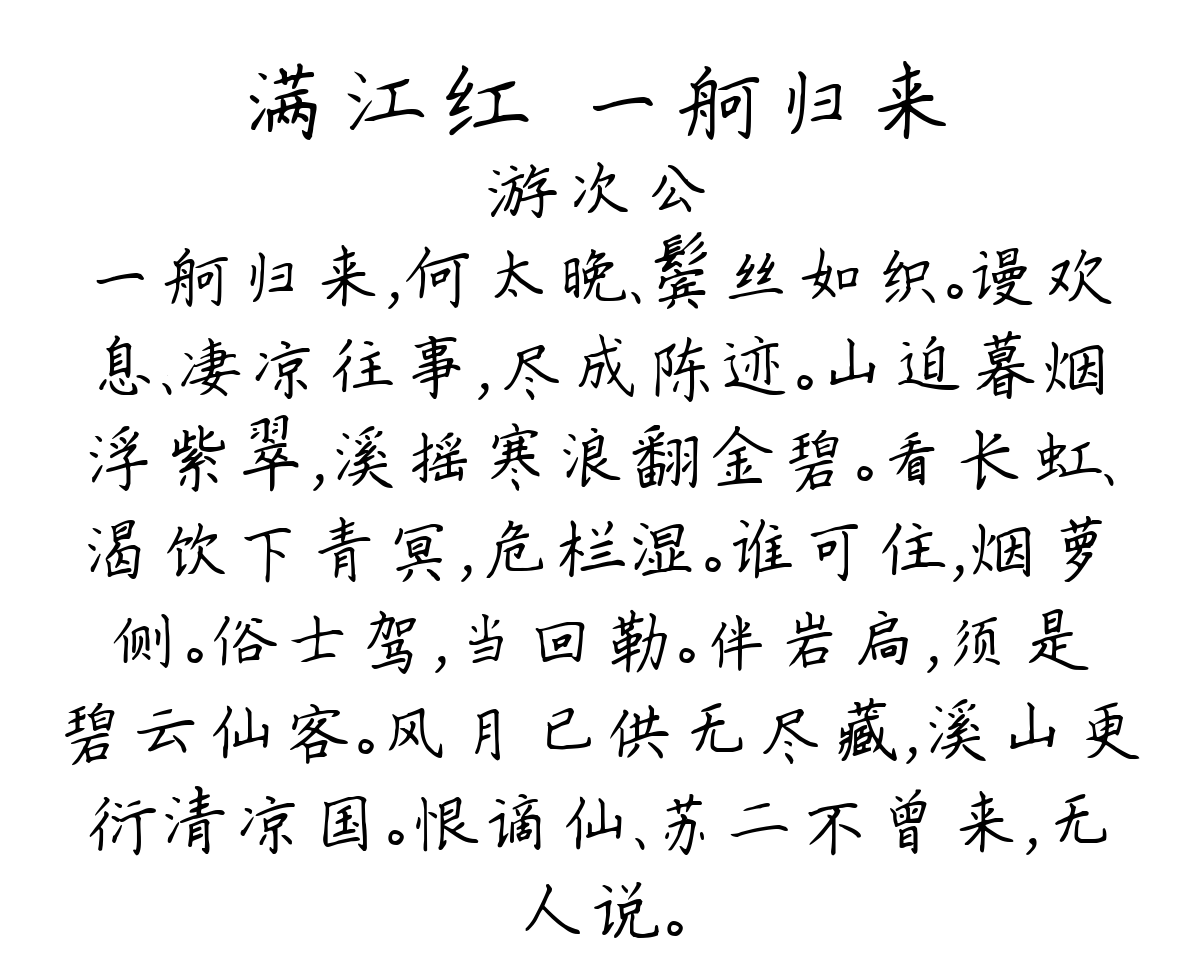 满江红 一舸归来
游次公
一舸归来,何太晚、鬓丝如织。谩欢
息、凄凉往事,尽成陈迹。山迫暮烟
浮紫翠,溪摇寒浪翻金碧。看长虹、
渴饮下青冥,危栏湿。谁可住,烟萝
侧。俗士驾,当回勒。伴岩扃,须是
碧云仙客。风月已供无尽藏,溪山更
衍清凉国。恨谪仙、苏二不曾来,无
人说。